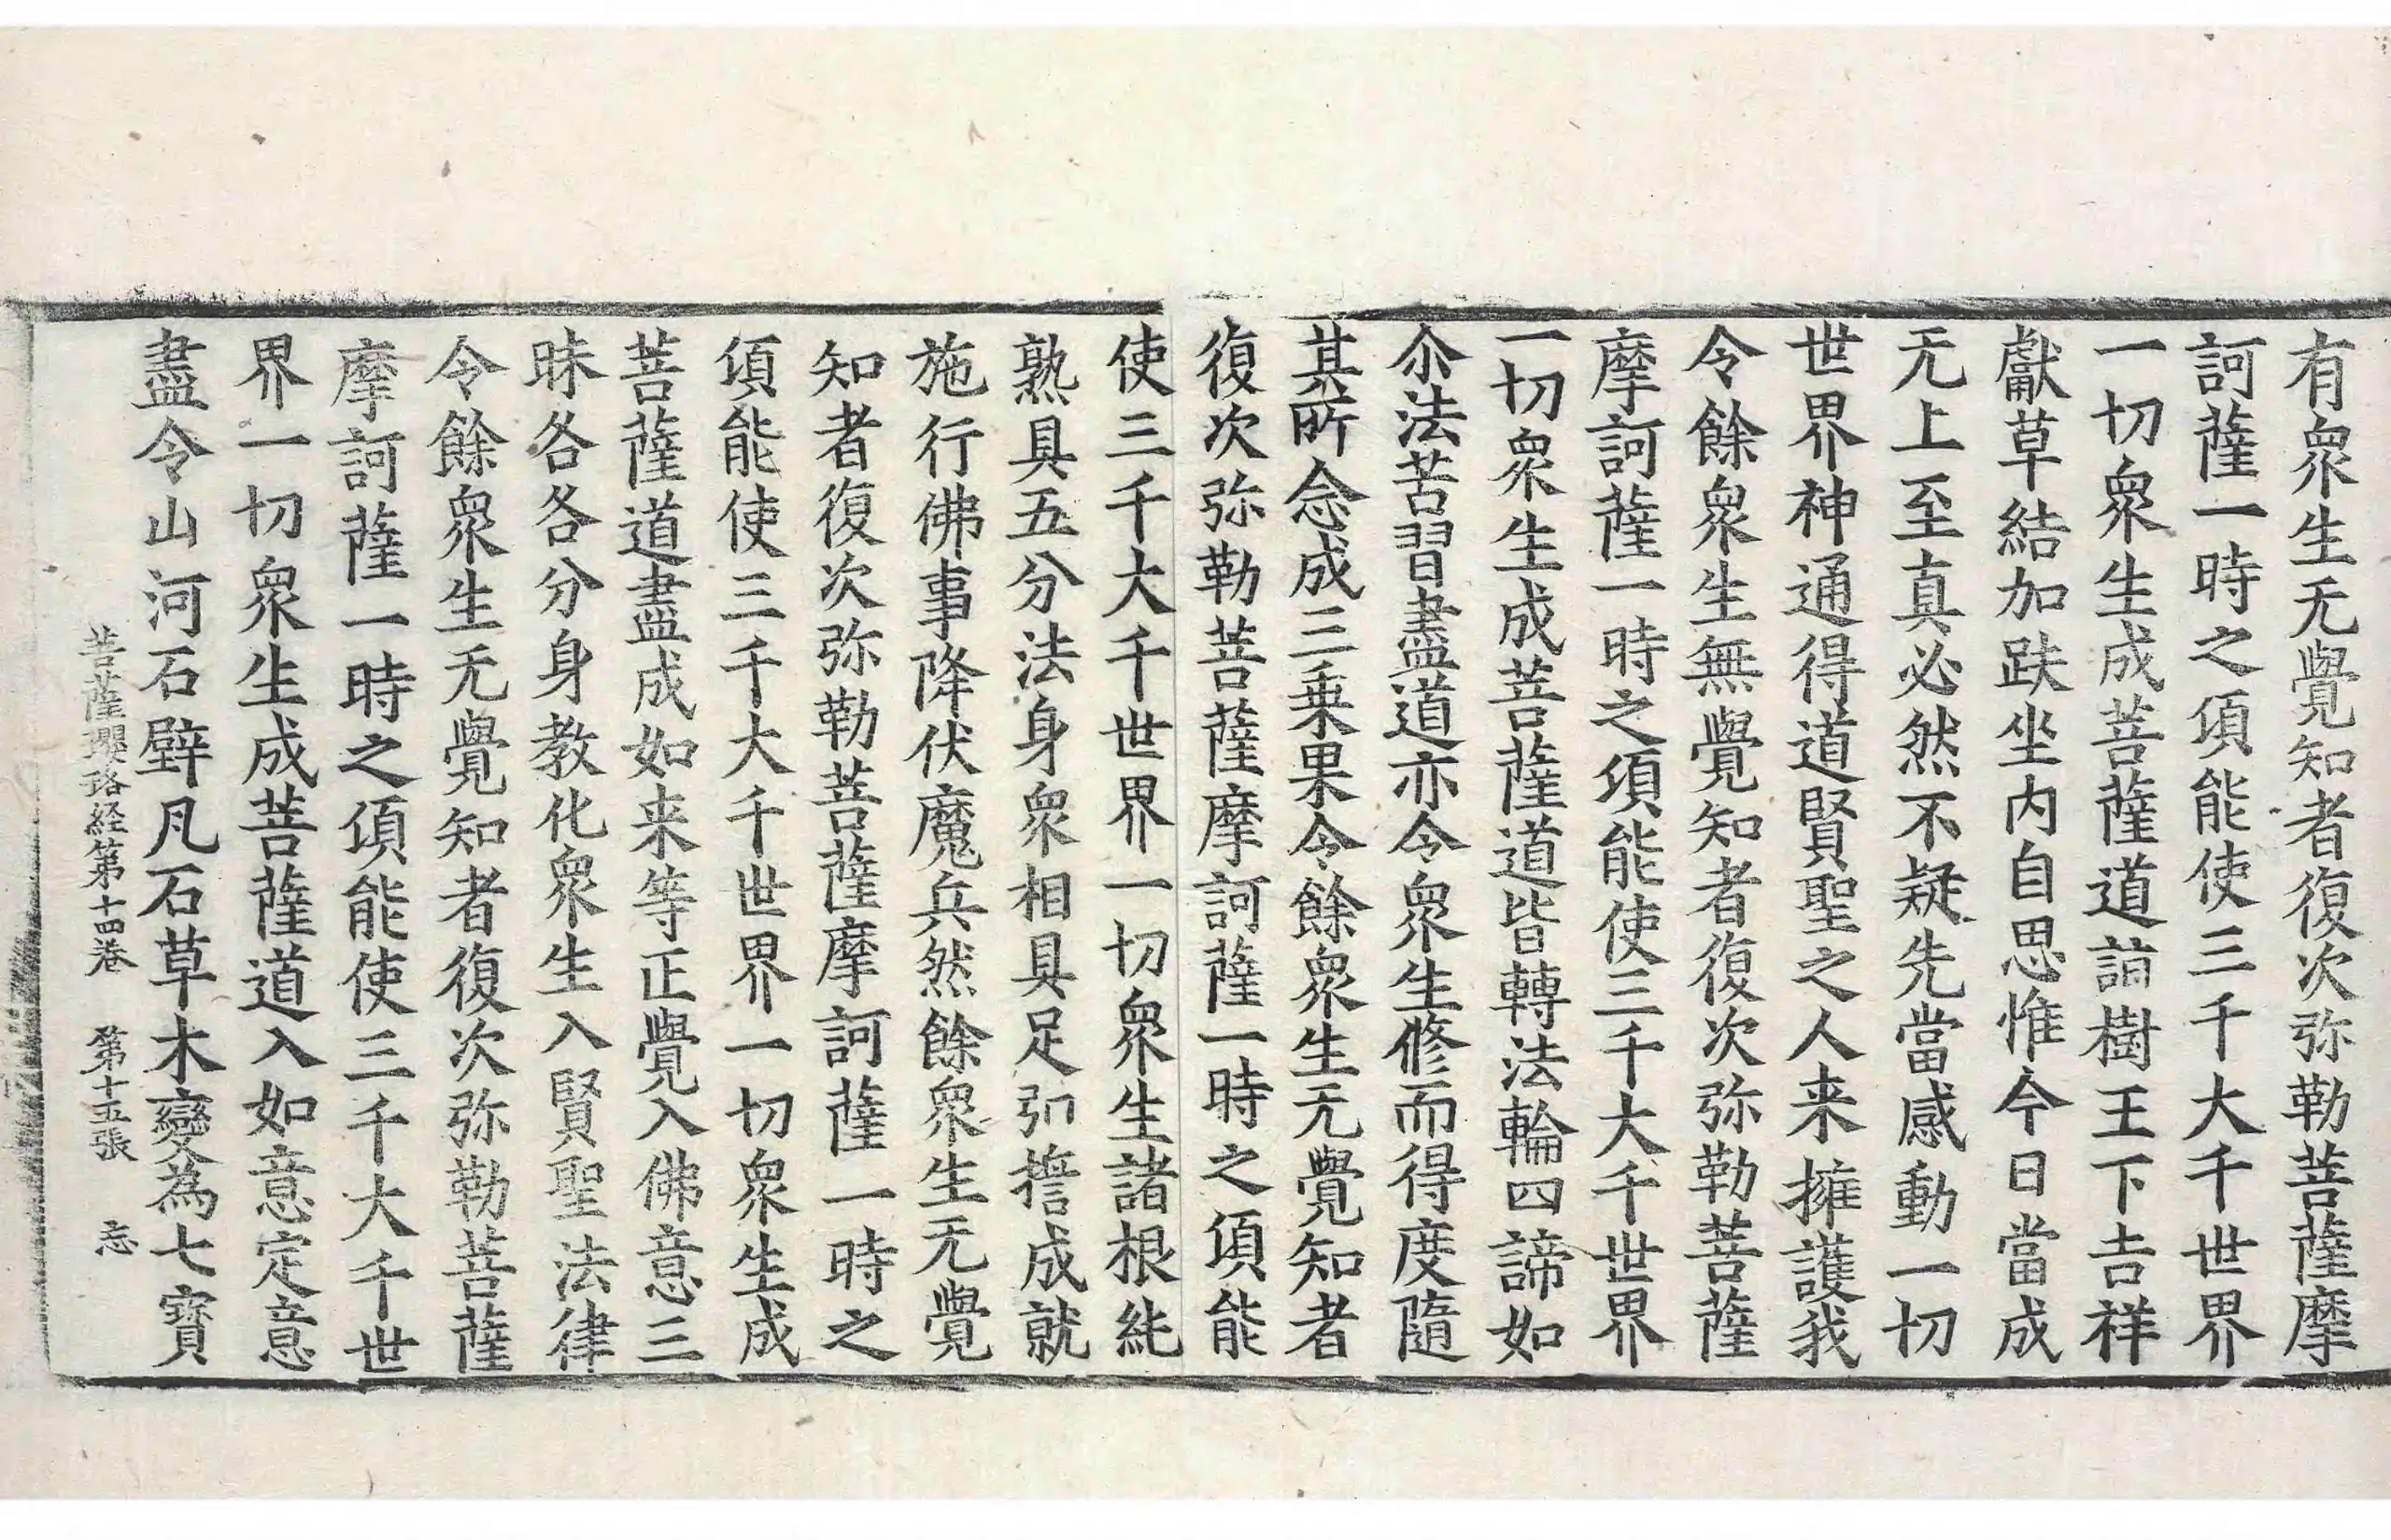 有衆生无覺知者復次弥勒菩薩摩
訶薩一時之頃能使三千大千世界
一切衆生成菩薩道詣樹王下吉祥
獻草結加趺坐内自思惟今日當成
无上至真必然不疑先當感動一切
世界神通得道賢聖之人来擁護我
令餘衆生無覺知者復次弥勒菩薩
摩訶薩一時之頃能使三千大千世界
一切衆生成菩薩道皆轉法輪四諦如
尒法苦習盡道亦令衆生修而得度隨
其所念成三乗果令餘衆生无覺知者
復次弥勒菩薩摩訶薩一時之頃能
使三千大千世界一切衆生諸根純
熟具五分法身衆相具足弘擔成就
施行佛事降伏魔兵然餘衆生无覺
知者復次弥勒菩薩摩訶薩一時之
頃能使三千大千世界一切衆生成
菩薩道盡成如来等正覺入佛意三
昧各各分身教化衆生入賢聖法律
令餘衆生无覺知者復次弥勒菩薩
摩訶薩一時之頃能使三千大千世
界一切衆生成菩薩道入如意定意
盡令山河石壁凡石草木變為七寶
菩薩瓔珞経第十四卷 第十五張 忘